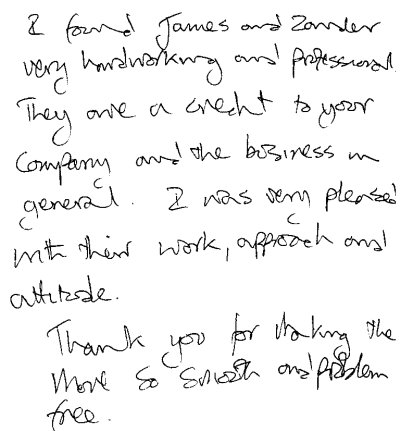 I found James and Zander
very hardworking and professional.
They are a credit to your
Company and the business in
general. I was very pleased
with their work, approach and
attitude.
Thank you for making the
move so smooth and problem
free.